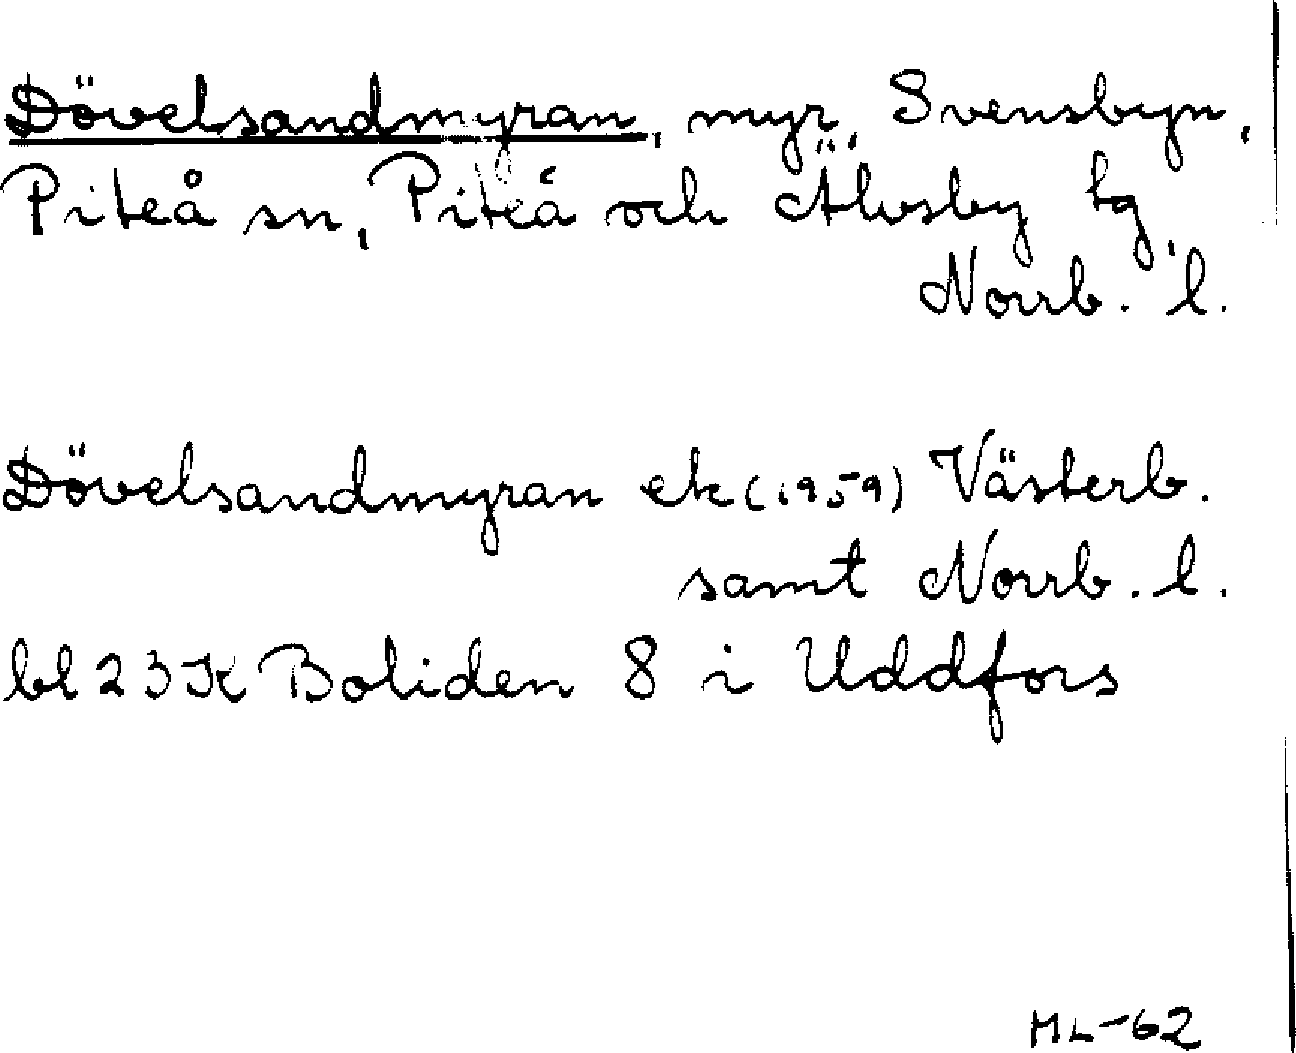 Dövelsandmyran, myr, Svensbyn,
Piteå sn, Piteå och Älvsby tg,
Norrb. l.
Dövelsandmyran ek (1959) Västerb.
samt Norrb. l.
bl 23K Boliden 8 i Uddfors
ML-62